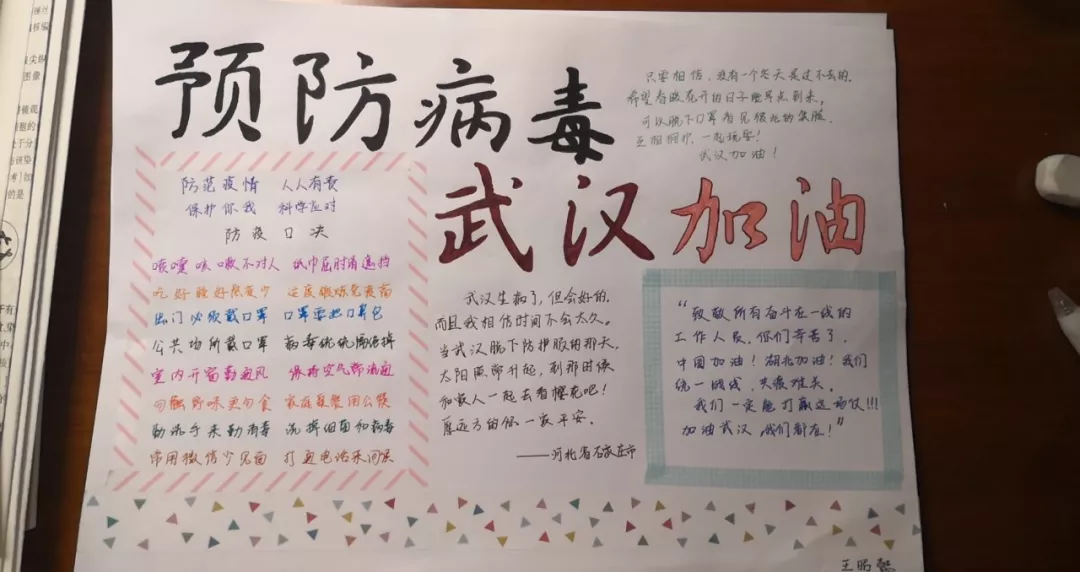 预防病毒
只要相信,没有一个冬天是过不去的.
希望春暖花开的日子能早点到来,
可以脱下口罩看见彼此的笑脸.
互相拥护,一起玩耍!
武汉加油!
武汉加油
防范疫情 人人有责
保护你我 科学应对
防疫口决
喷嚏咳嗽不对人 纸巾屈肘有遮挡
吃好睡好熬夜少 适度锻炼免疫高
出门必须戴口罩
公共场所戴口罩 病毒统统隔离掉
室内开窗勤通风 保持空气常流通
勿触野味更勿食 家庭聚餐用公筷
勤洗手来勤消毒 洗掉细菌和病毒
常用微信少见面 打通电话来问候
武汉生病了,但会好的.
而且我相信时间不会太久。
当武汉脱下防护服的那天,
太阳照常升起,到那时候
和家人一起去看樱花吧!
愿远方的你一家平安.
——河北省石家庄市
“致敬所有奋斗在一线的
工作人员,你们辛苦了.
中国加油!湖北加油!我们
统一战线,共渡难关.
我们一定能打赢这场仗!!!
加油武汉,我们都在!”